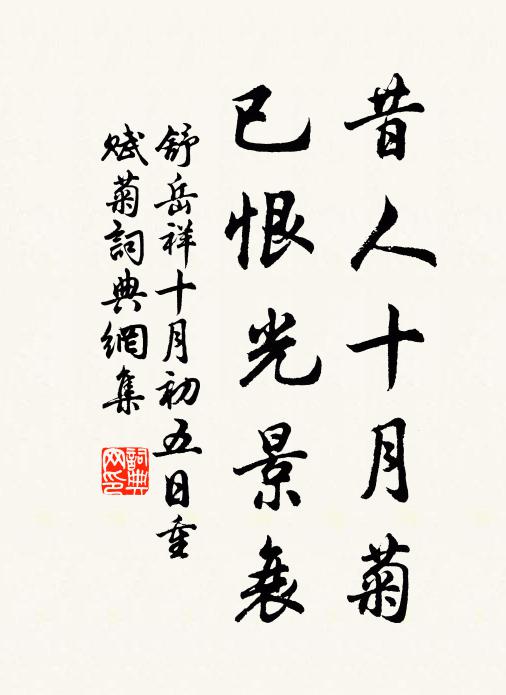 昔人十月菊
已恨光景衰
舒岳祥十月初五日重
赋菊詞典網集
詞典
网印